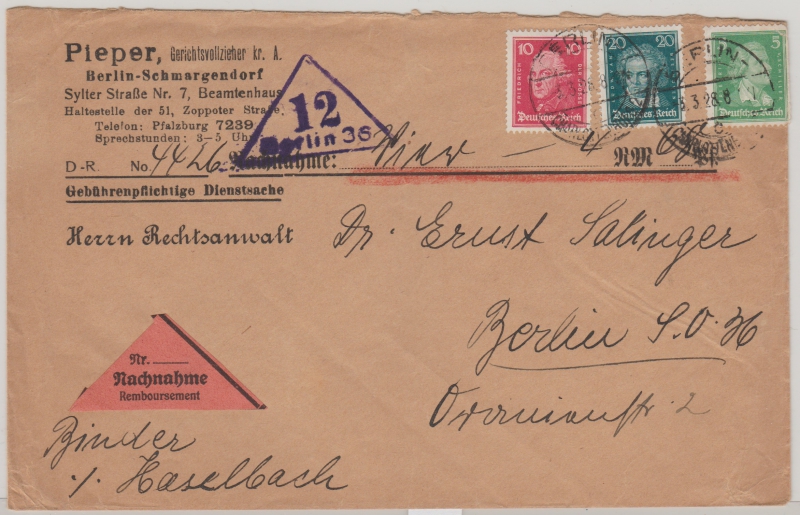 Pieper, Gerichtsvollzieher kr. A.
Berlin-Schmargendorf
Sylter Straße Nr. 7, Beamtenhaus
Haltestelle der 51, Zoppoter Straße
Telefon: Pfalzburg 7239
Sprechstunden: 3–5 Uhr
12
Berlin 36
10 10
FRIEDRICH
Deutsches Reich
20 20
Deutsches Reich
5
Deutsches Reich
BERLIN
3.28.8
D-R. No. 4426 Nachnahme: Vier — 4 RM
Gebührenpflichtige Dienstsache
Herrn Rechtsanwalt Dr. Ernst Salinger
Berlin S.O. 36
Oranienstr 2
Nr.
Nachnahme
Remboursement
Binder
./. Haselbach